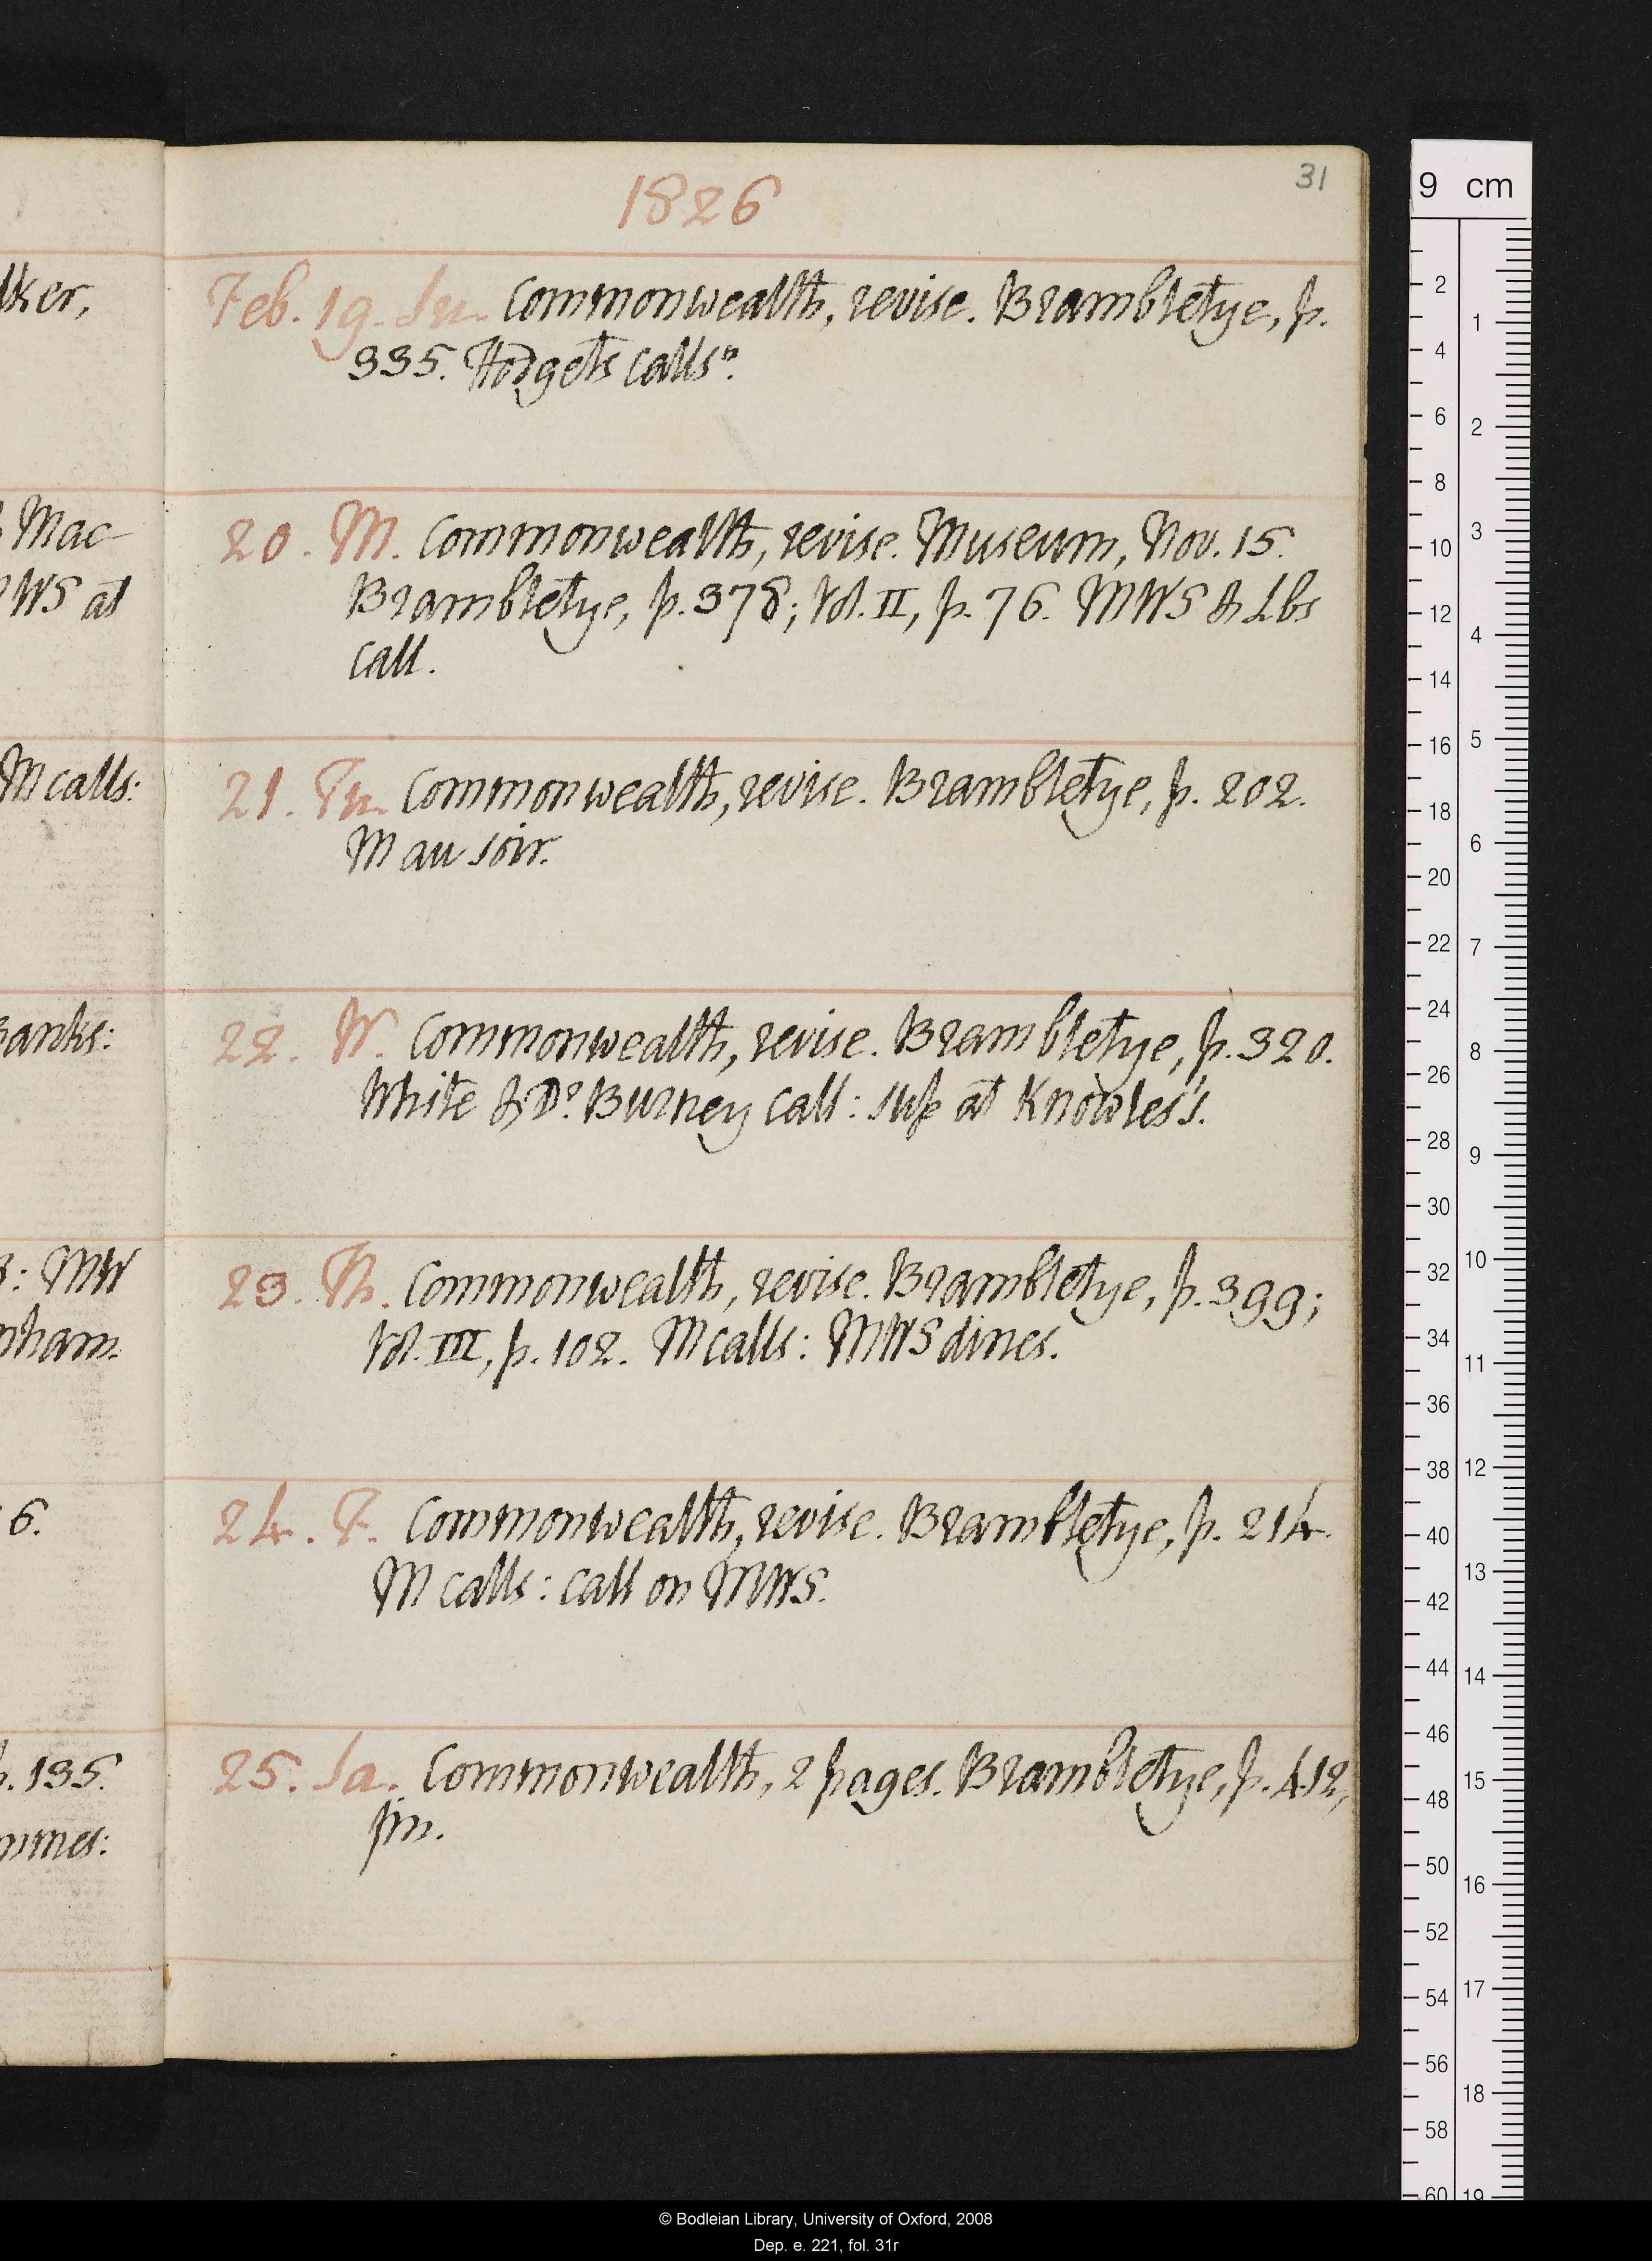 31
1826
Feb. 19. Su. Commonwealth, revise. Brambletye, p.
335. Hodgets calls n.
20. M. Commonwealth, revise. Museum, Nov. 15.
Brambletye, p. 378; Vol. II, p. 76. MWS & Lbs
call.
21. Tu. Commonwealth, revise. Brambletye, p. 202.
M au soir.
22. W. Commonwealth, revise. Brambletye, p. 320.
White & Dr Burney call: sup at Knowles's.
23. Th. Commonwealth, revise. Brambletye, p. 399;
Vol. III, p. 102. M calls: MWS dines.
24. F. Commonwealth, revise. Brambletye, p. 214.
M calls: call on MWS.
25. Sa. Commonwealth, 2 pages. Brambletye, p. 412,
fin.
lker,
Mac-
WS at
M calls:
anks:
: MW
nham.
6.
. 135.
mmes:
9 cm
2
4
6
8
10
12
14
16
18
20
22
24
26
28
30
32
34
36
38
40
42
44
46
48
50
52
54
56
58
60
1
2
3
4
5
6
7
8
9
10
11
12
13
14
15
16
17
18
19
© Bodleian Library, University of Oxford, 2008
Dep. e. 221, fol. 31r